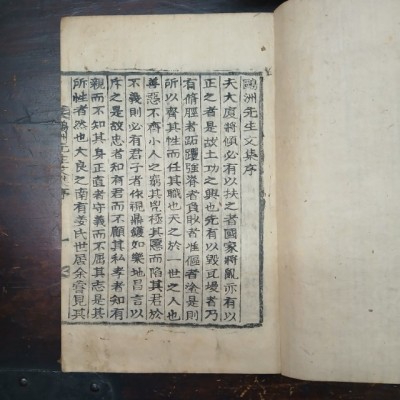 鷗洲先生文集序
天大廈將傾必有以扶之者國家將亂亦有以
正之者是故土功之興也先有以毀瓦墁者乃
有脩脛者跖钁強脊者負畚者傴者塗是則
所以齊其性而任其職也天之於一世之人也
善惡不齊小人之窮其兇極其惡而陷其君於
不義則必有君子者俟視鼎鑊如樂地昌言以
斥之是故忠者知有君而不顧其私孝者知有
親而不知其身正直者守義而不屈其志是其
所性者然也大良之南有姜氏世居余嘗見其